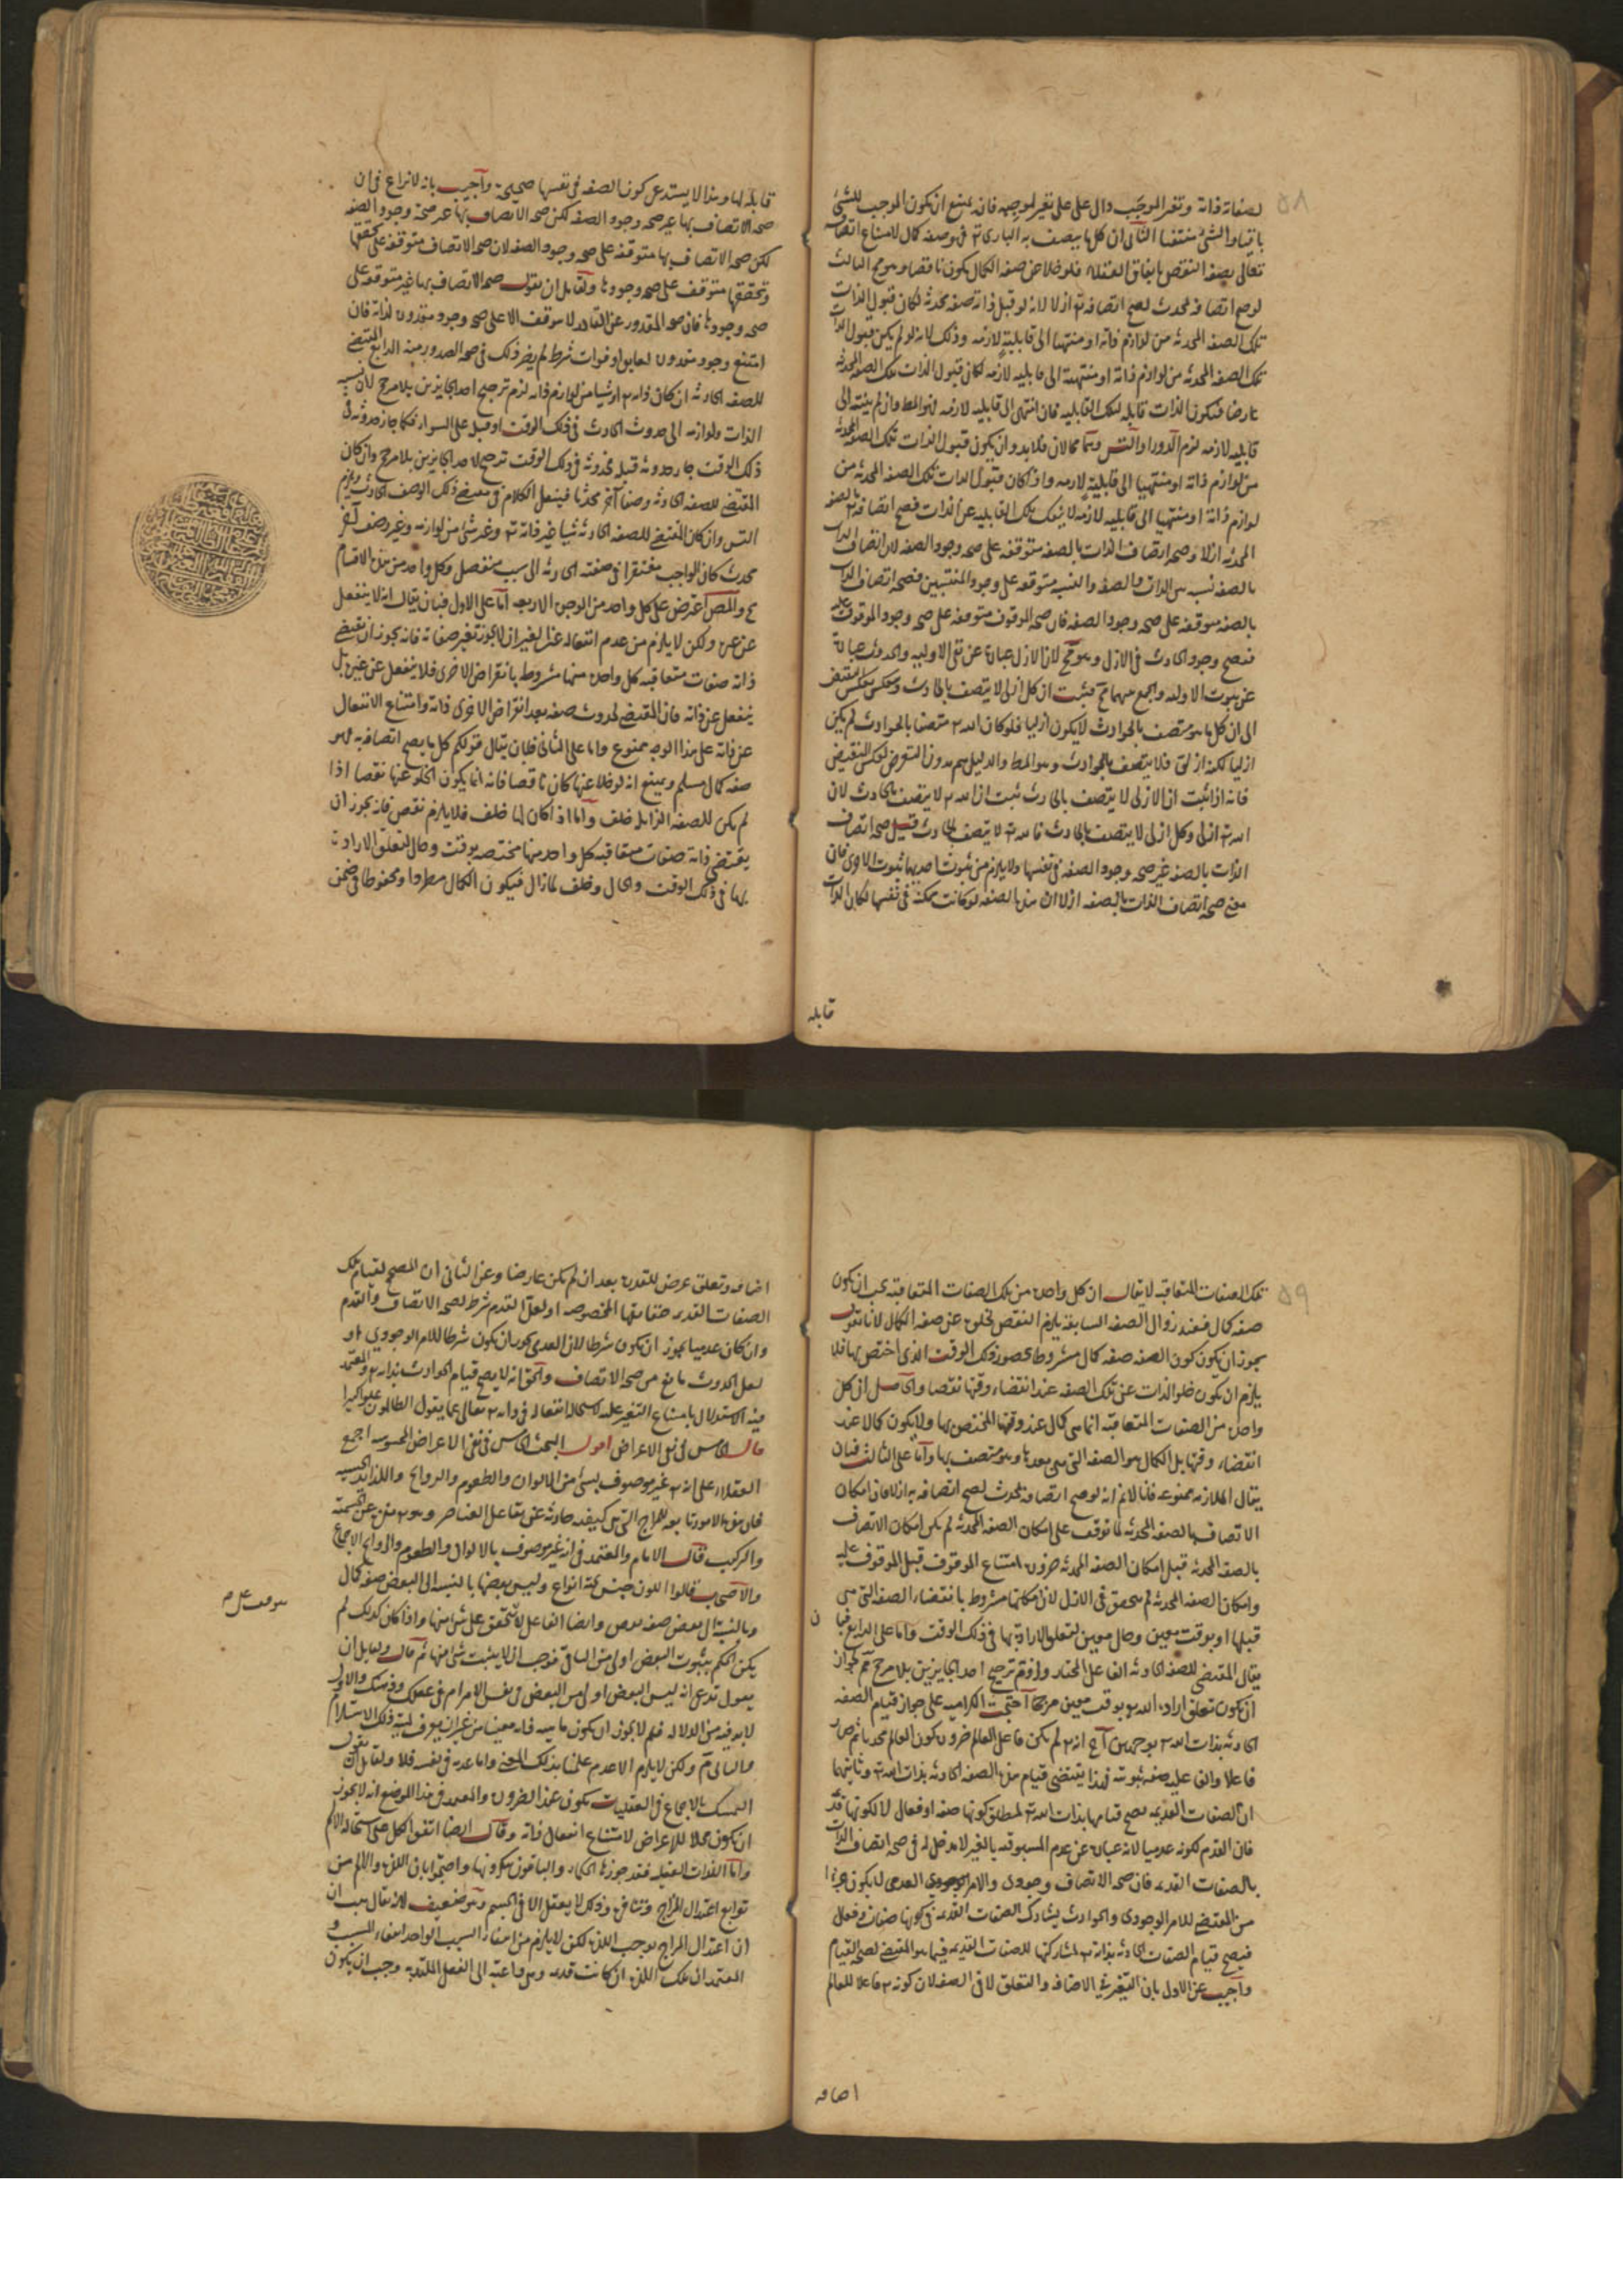 ٥٨
لصفاته ذاته وتغير الموجَب دال على على تغير الموجِب فانه يمتنع ان يكون الموجب للشئ
باقيا والشئ منتفيا الثانى ان كل ما يتصف به البارى تع فهو صفه كمال لامتناع اتصافه
تعالى بصفه النقص باتفاق العقلاء فلو خلا عن صفه الكمال يكون ناقصا وهو مح الثالث
لو صح اتصافه بمحدث لصح اتصافه به ازلا لانه لو قبل ذاته صفه محدثه لكان قبول الذات
تلك الصفه المحدثه من لوازم ذاته او منتهيا الى قابلية لازمه وذلك لانه لو لم يكن قبول الذات
تلك الصفه المحدثه من لوازم ذاته او منتهية الى قابليه لازمه لكان قبول الذات تلك الصفه المحدثه
عارضا فيكون الذات قابله لتلك القابليه فان انتهى الى قابليه لازمه فهو المط وان لم ينته الى
قابليه لازمه لزم الدور او التس وهما محالان فلا بد وان يكون قبول الذات تلك الصفه المحدثه
من لوازم ذاته او منتهيا الى قابلية لازمه واذا كان قبول الذات تلك الصفه المحدثه من
لوازم ذاته او منتهيا الى قابليه لازمه لا ينفك تلك القابليه عن الذات فصح اتصافه بالصفه
المحدثه ازلا وصحه اتصاف الذات بالصفه متوقفه على صحه وجود الصفه لان اتصاف الذات
بالصفه نسبه بين الذات والصفه والنسبه متوقفه على وجود المنتسبين فصحه اتصاف الذات
بالصفه متوقفه على صحه وجود الصفه فان صحه الموقوف متوقفه على صحه وجود الموقوف عليه
فيصح وجود الحادث فى الازل وهو مح لان الازل عبارة عن نفى الاوليه والحدوث عبارة
عن ثبوت الاوليه والجمع بينهما مح فثبت ان كل ازلى لا يتصف بالحادث وينعكس بعكس النقيض
الى ان كل ما هو متصف بالحوادث لا يكون ازليا فلو كان الله تع متصفا بالحوادث لم يكن
ازليا لكنه ازلى فلا يتصف بالحوادث وهو المط والدليل يتم بدون التعرض لعكس النقيض
فانه اذا ثبت ان الازلى لا يتصف بالحادث ثبت ان الله تع لا يتصف بالحادث لان
الله تع ازلى وكل ازلى لا يتصف بالحادث فالله تع لا يتصف بالحادث قيل صحه اتصاف
الذات بالصفه غير صحه وجود الصفه فى نفسها ولا يلزم من ثبوت احديهما ثبوت الاخرى فان
معنى صحه اتصاف الذات بالصفه ازلا ان هذه الصفه لو كانت ممكنة فى نفسها لكان الذات
قابله
قابله لها وهذا لا يستدعى كون الصفه فى نفسها صحيحة واجيب بانه لا نزاع فى ان
صحه الاتصاف بها غير صحه وجود الصفه لكن صحه الاتصاف بها عير صحة وجود الصفه
لكن صحه الاتصاف بها متوقفه على صحه وجود الصفه لان صحه الاتصاف متوقفه على تحققها
وتحققها متوقف على صحه وجودها ولقائل ان يقول صحه الاتصاف بها غير متوقفه على
صحه وجودها فان صحه المقدور عن القادر لا يتوقف الا على صحه وجود مقدوره لذاته فان
امتنع وجود مقدوره لعايق او فوات شرط لم يضر ذلك فى صحه الصدور منه الرابع المقتضى
للصفه الحادثه ان كان ذاته تع او شيا من لوازم ذاته لزم ترجيح احد الجايزين بلا مرجح لان نسبه
الذات ولوازمه الى حدوث الحادث فى ذلك الوقت او قبله على السواء فكما جاز حدوثه فى
ذلك الوقت جاز حدوثه قبله فحدوثه فى ذلك الوقت ترجيح لاحد الجايزين بلا مرجح وان كان
المقتضى للصفه الحادثه وصفا آخر محدثا فينقل الكلام فى مقتضى ذلك الوصف الحادث ويلزم
التس وان كان المقتضى للصفه الحادثه شيا غير ذاته تع وغير شئ من لوازمه وغير وصف آخر
محدث كان الواجب مفتقرا فى صفته الحادثه الى سبب منفصل وكل واحد من هذه الاقسام
مح والمص اعترض على كل واحد من الوجوه الاربعه اما على الاول فبان يقال انه لا ينفعل
عن غيره ولكن لا يلزم من عدم انفعاله عن الغير ان لا يجوز تغير صفاته فانه يجوز ان يقتضى
ذاته صفات متعاقبه كل واحده منها مشروط بانقراض الاخرى فلا ينفعل عن غيره بل
ينفعل عن ذاته فان المقتضى لحدوث صفه بعد انقراض الاخرى ذاته وامتناع الانفعال
عن ذاته على هذا الوجه ممنوع واما على الثانى فبان يقال قولكم كل ما يصح اتصافه به فهو
صفه كمال مسلم ويمنع انه لو خلا عنها كان ناقصا فانه انما يكون الخلو عنها نقصا اذا
لم يكن للصفه الزايله خلف واما اذا كان لها خلف فلا يلزم نقص فانه يجوز ان
يقتضى ذاته صفات متعاقبه كل واحد منها مختصه بوقت وحال لتعلق الارادة
بها فى ذلك الوقت والحال وخلف لما زال فيكون الكمال مطردا ومحفوظا فى ضمن
٥٩
تلك الصفات المتعاقبه لا يقال ان كل واحده من تلك الصفات المتعاقبه يجب ان يكون
صفه كمال فعند زوال الصفه السابقه يلزم النقص لخلوه عن صفه الكمال لانا نقول
يجوز ان يكون كون الصفه صفه كمال مشروطا بحضور ذلك الوقت الذى اختص بها فلا
يلزم ان يكون خلو الذات عن تلك الصفه عند انقضاء وقتها نقصا والحاصل ان كل
واحده من الصفات المتعاقبه انما هى كمال عند وقتها المختص بها ولا يكون كمالا عند
انقضاء وقتها بل الكمال هو الصفه التى هى بعدها وهو متصف بها واما على الثالث فبان
يقال الملازمه ممنوعه فانا لانم انه لو صح اتصافه بمحدث لصح اتصافه به ازلا فان امكان
الاتصاف بالصفه المحدثه لما توقف على امكان الصفه المحدثه لم يكن امكان الاتصاف
بالصفه المحدثه قبل امكان الصفه المحدثه ضرورة امتناع الموقوف قبل الموقوف عليه
وامكان الصفه المحدثه لم يتحقق فى الازل لان امكانها مشروط بانقضاء الصفه التى هى
قبلها او بوقت معين وحال معين لتعلق الارادة بها فى ذلك الوقت واما على الرابع فبا
ن
يقال المقتضى للصفه الحادثه الفاعل المختار ولزوم ترجيح احد الجايزين بلا مرجح مم لجواز
ان يكون تعلق ارادة الله تع بوقت معين مرجحا احتجت الكراميه على جواز قيام الصفه
الحادثه بذات الله تع بوجهين آ انه تع لم يكن فاعل العالم ضرورة كون العالم محدثا ثم صار
فاعلا والفاعليه صفه ثبوتيه فهذا يقتضى قيام هذه الصفه الحادثه بذات الله تع وثانيهما
ان الصفات القديمه يصح قيامها بذات الله تع لمطلق كونها صفه او فعال لا لكونها قديمة
فان القدم لكونه عدميا لانه عبارة عن عدم المسبوقيه بالغير لا مدخل له فى صحه اتصاف الذات
بالصفات القديمه فان صحه الاتصاف وجودى والامر العدمى لا يكون جزءا
من المقتضى للامر الوجودى والحوادث يشارك الصفات القديمه فى كونها صفات وفعال
فيصح قيام الصفات الحادثه بذاته تع لمشاركتها للصفات القديمه فيما هو المقتضى لصحه القيام
واجيب عن الاول بان التغير فى الاضافه والتعلق لا فى الصفه لان كونه تع فاعلا للعالم
اضافه
اضافه وتعلق عرض للقدرة بعد ان لم يكن عارضا وعن الثانى ان المصحح لقيام تلك
الصفات القديمه حقايقها المخصوصه او لعل القدم شرط لصحه الاتصاف والقدم
وان كان عدميا يجوز ان يكون شرطا لان العدمى يجوز ان يكون شرطا للامر الوجودى او
لعل الحدوث مانع من صحه الاتصاف والحق انه لا يصح قيام الحوادث بذاته تع والمعتمد
فيه الاستدلال بامتناع التغير عليه لاستحاله انفعاله فى ذاته تع تعالى عما يقول الظالمون علوا كبيرا
قال الخامس فى نفى الاعراض اقول البحث الخامس فى نفى الاعراض المحسوسه اجمع
العقلاء على انه تع غير موصوف بشئ من الالوان والطعوم والروايح واللذايذ الحسيه
فان هذه الامور تابعه للمزاج الذى هو كيفيه حادثه عن تفاعل العناصر وهو تع منزه عن الجسميه
والتركيب قال الامام والمعتمد فى انه غير موصوف بالالوان والطعوم والروايح الاجماع
والاصحاب قالوا اللون جنس تحته انواع وليس بعضها بالنسبه الى البعض صفه كمال
وبالنسبة الى بعض صفه نقص وايضا الفاعليه لا يتحقق على شئ منها واذا كان كذلك لم
يكن الحكم بثبوت البعض اولى من الباقى فوجب ان لا يثبت شئ منها ثم قال ولقايل ان
يقول تدعى انه ليس البعض اولى من البعض فى نفس الامر ام فى عقلك وذهنك والاول
لا بد فيه من الدلاله فلم لا يجوز ان يكون ماهيه ذاته معينا من غير ان يعرف لميه ذلك الاستلزام
والثانى مم ولكن لا يلزم الا عدم علمنا بذلك المعين واما عدمه فى نفسه فلا ولقايل ان يقول
التمسك بالاجماع فى العقليات يكون عند الضرورة والمعتمد فى هذا الموضع انه لا يجوز
ان يكون محلا للاعراض لامتناع انفعال ذاته وقال ايضا اتفق الكل على استحاله الالم
واما اللذات العقليه فقد جوزها الحكماء والباقون ينكرونها واحتجوا بان اللذه والالم من
توابع اعتدال المزاج وتنافره وذلك لا يعقل الا فى الجسم وهو ضعيف لانه يقال هب ان
ان اعتدال المزاج يوجب اللذه لكن لا يلزم من انتفاء السبب الواحد انتفاء المسبب و
المعتمد ان تلك اللذه ان كانت قديمه وهى داعيه الى الفعل الملتذ به وجب ان يكون